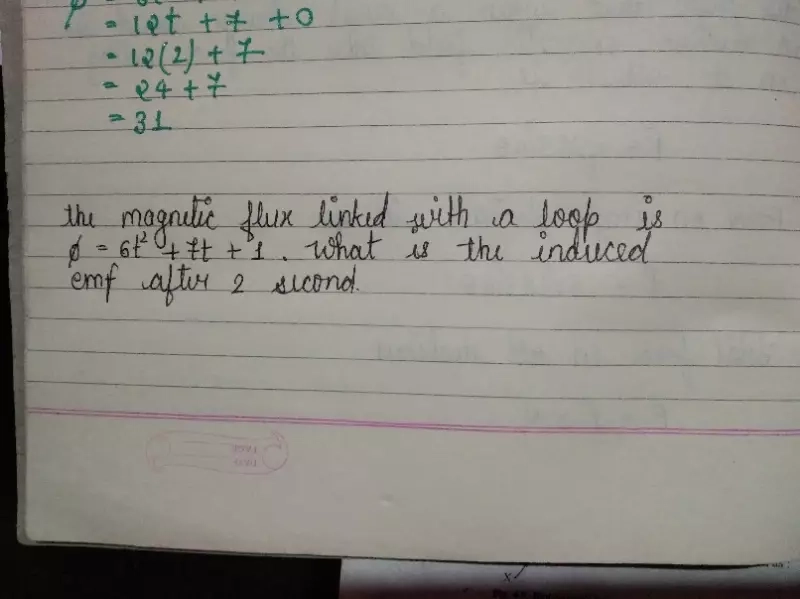 = 12t + 7 + 0
= 12(2) + 7
= 24 + 7
= 31
the magnetic flux linked with a loop is
ϕ = 6t² + 7t + 1. What is the induced
emf after 2 second.